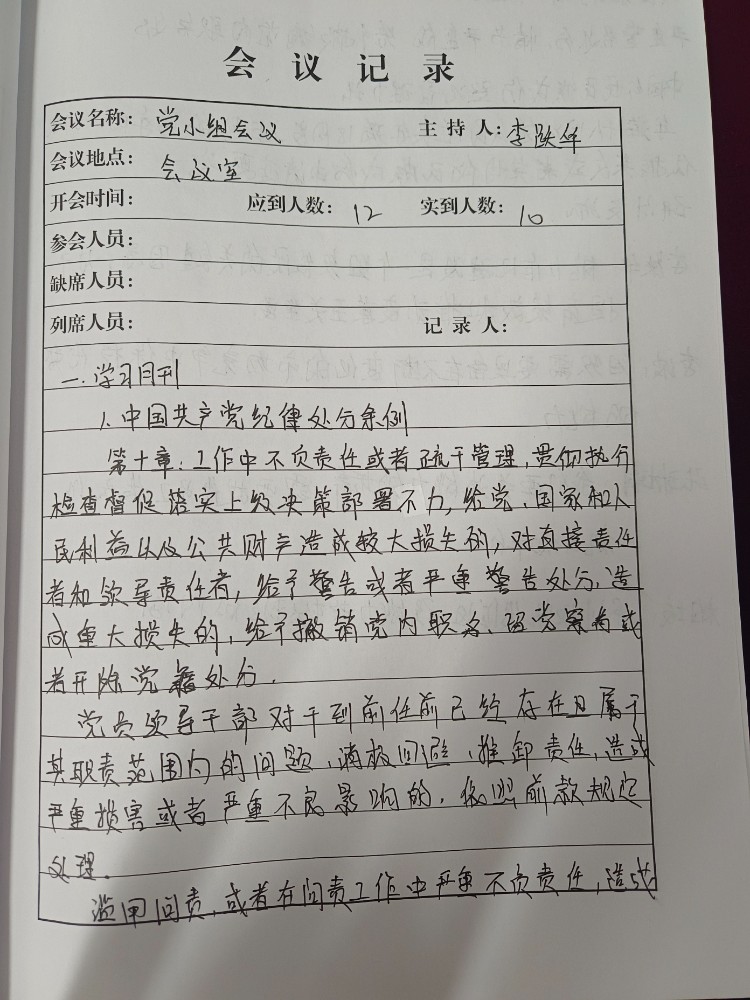 会议记录
会议名称: 党小组会议 主持人: 李跃华
会议地点: 会议室
开会时间: 应到人数: 12 实到人数: 10
参会人员:
缺席人员:
列席人员: 记录人:
一. 学习月刊
1. 中国共产党纪律处分条例
第十章: 工作中不负责任或者疏于管理, 贯彻执行
检查督促落实上级决策部署不力, 给党、国家和人
民利益以及公共财产造成较大损失的, 对直接责任
者和领导责任者, 给予警告或者严重警告处分, 造
成重大损失的, 给予撤销党内职务、留党察看或
者开除党籍处分.
党员领导干部对于到前任前已经存在且属于
其职责范围内的问题, 消极回避、推卸责任, 造成
严重损害或者严重不良影响的, 依照前款规定
处理.
滥用问责, 或者在问责工作中严重不负责任, 造成